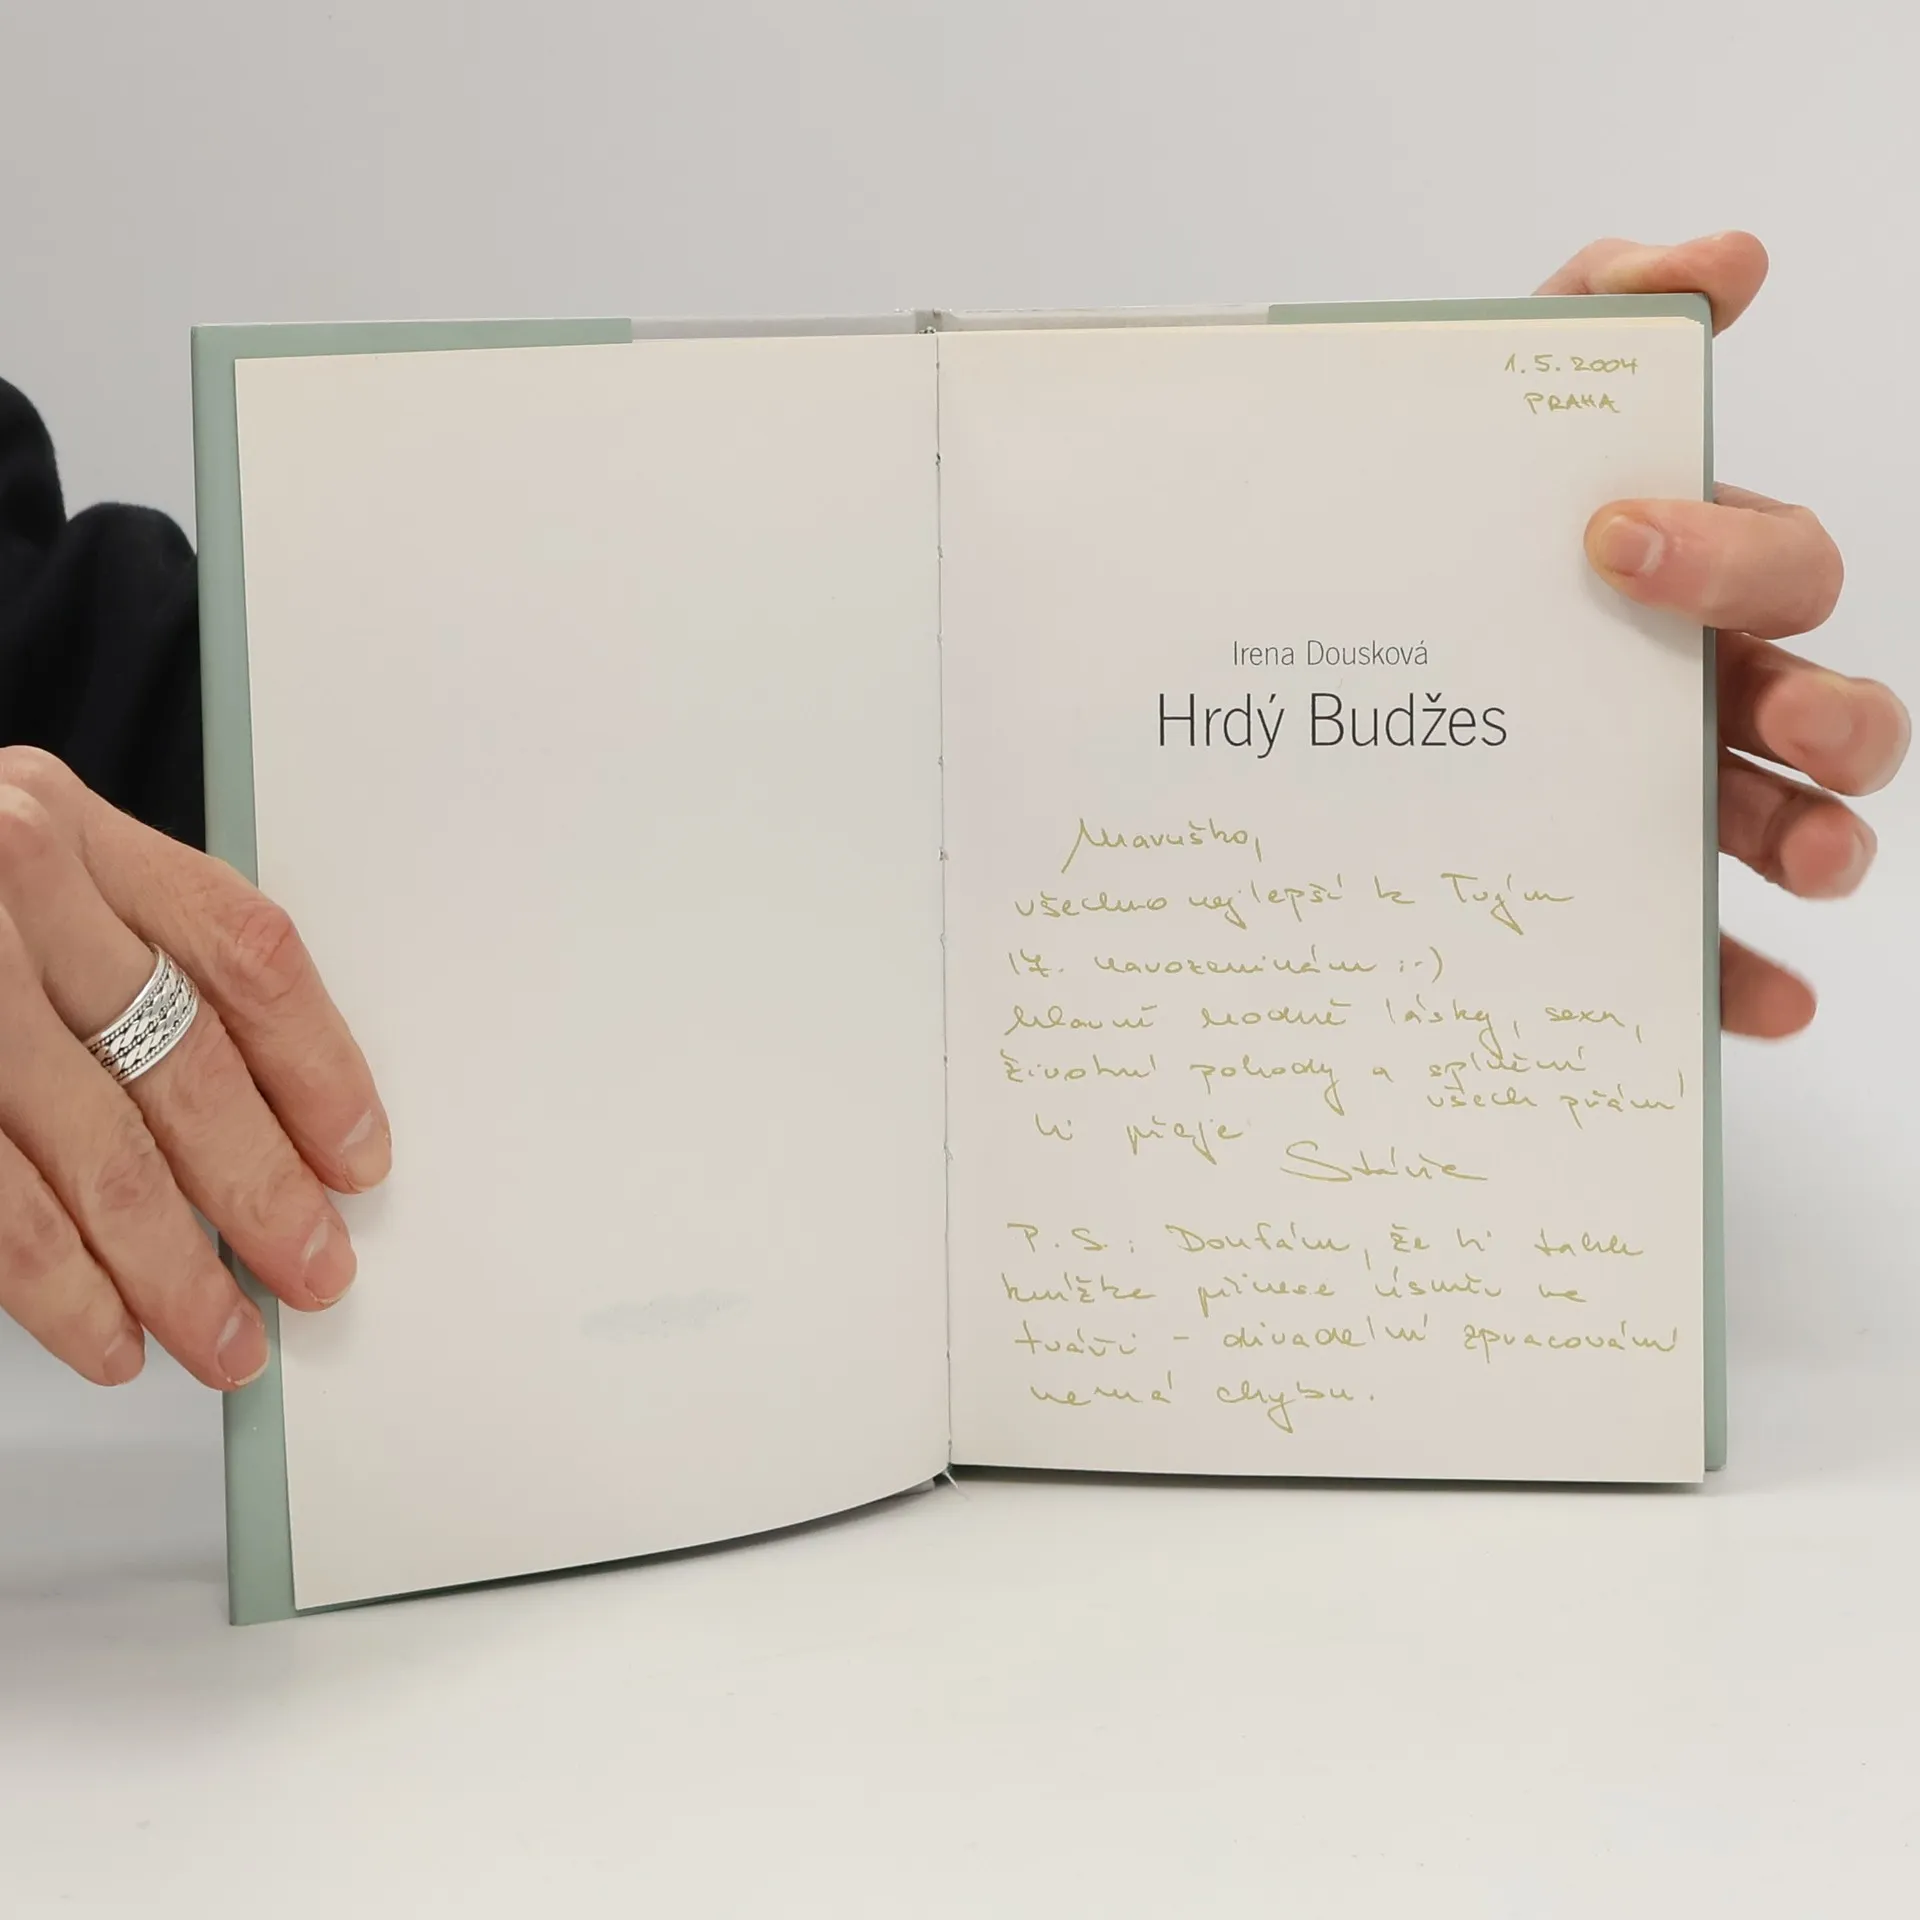 1.5.2004
PRAHA
Irena Dousková
Hrdý Budžes
Maruško,
všechno nejlepší k Tvým
17. narozeninám :-)
hlavně hodně lásky, sexu,
životní pohody a splnění
všech přání
ti přeje
P.S.: Doufám, že ti tahle
knížka přinese úsměv ve
tváři - divadelní zpracování
nemá chybu.